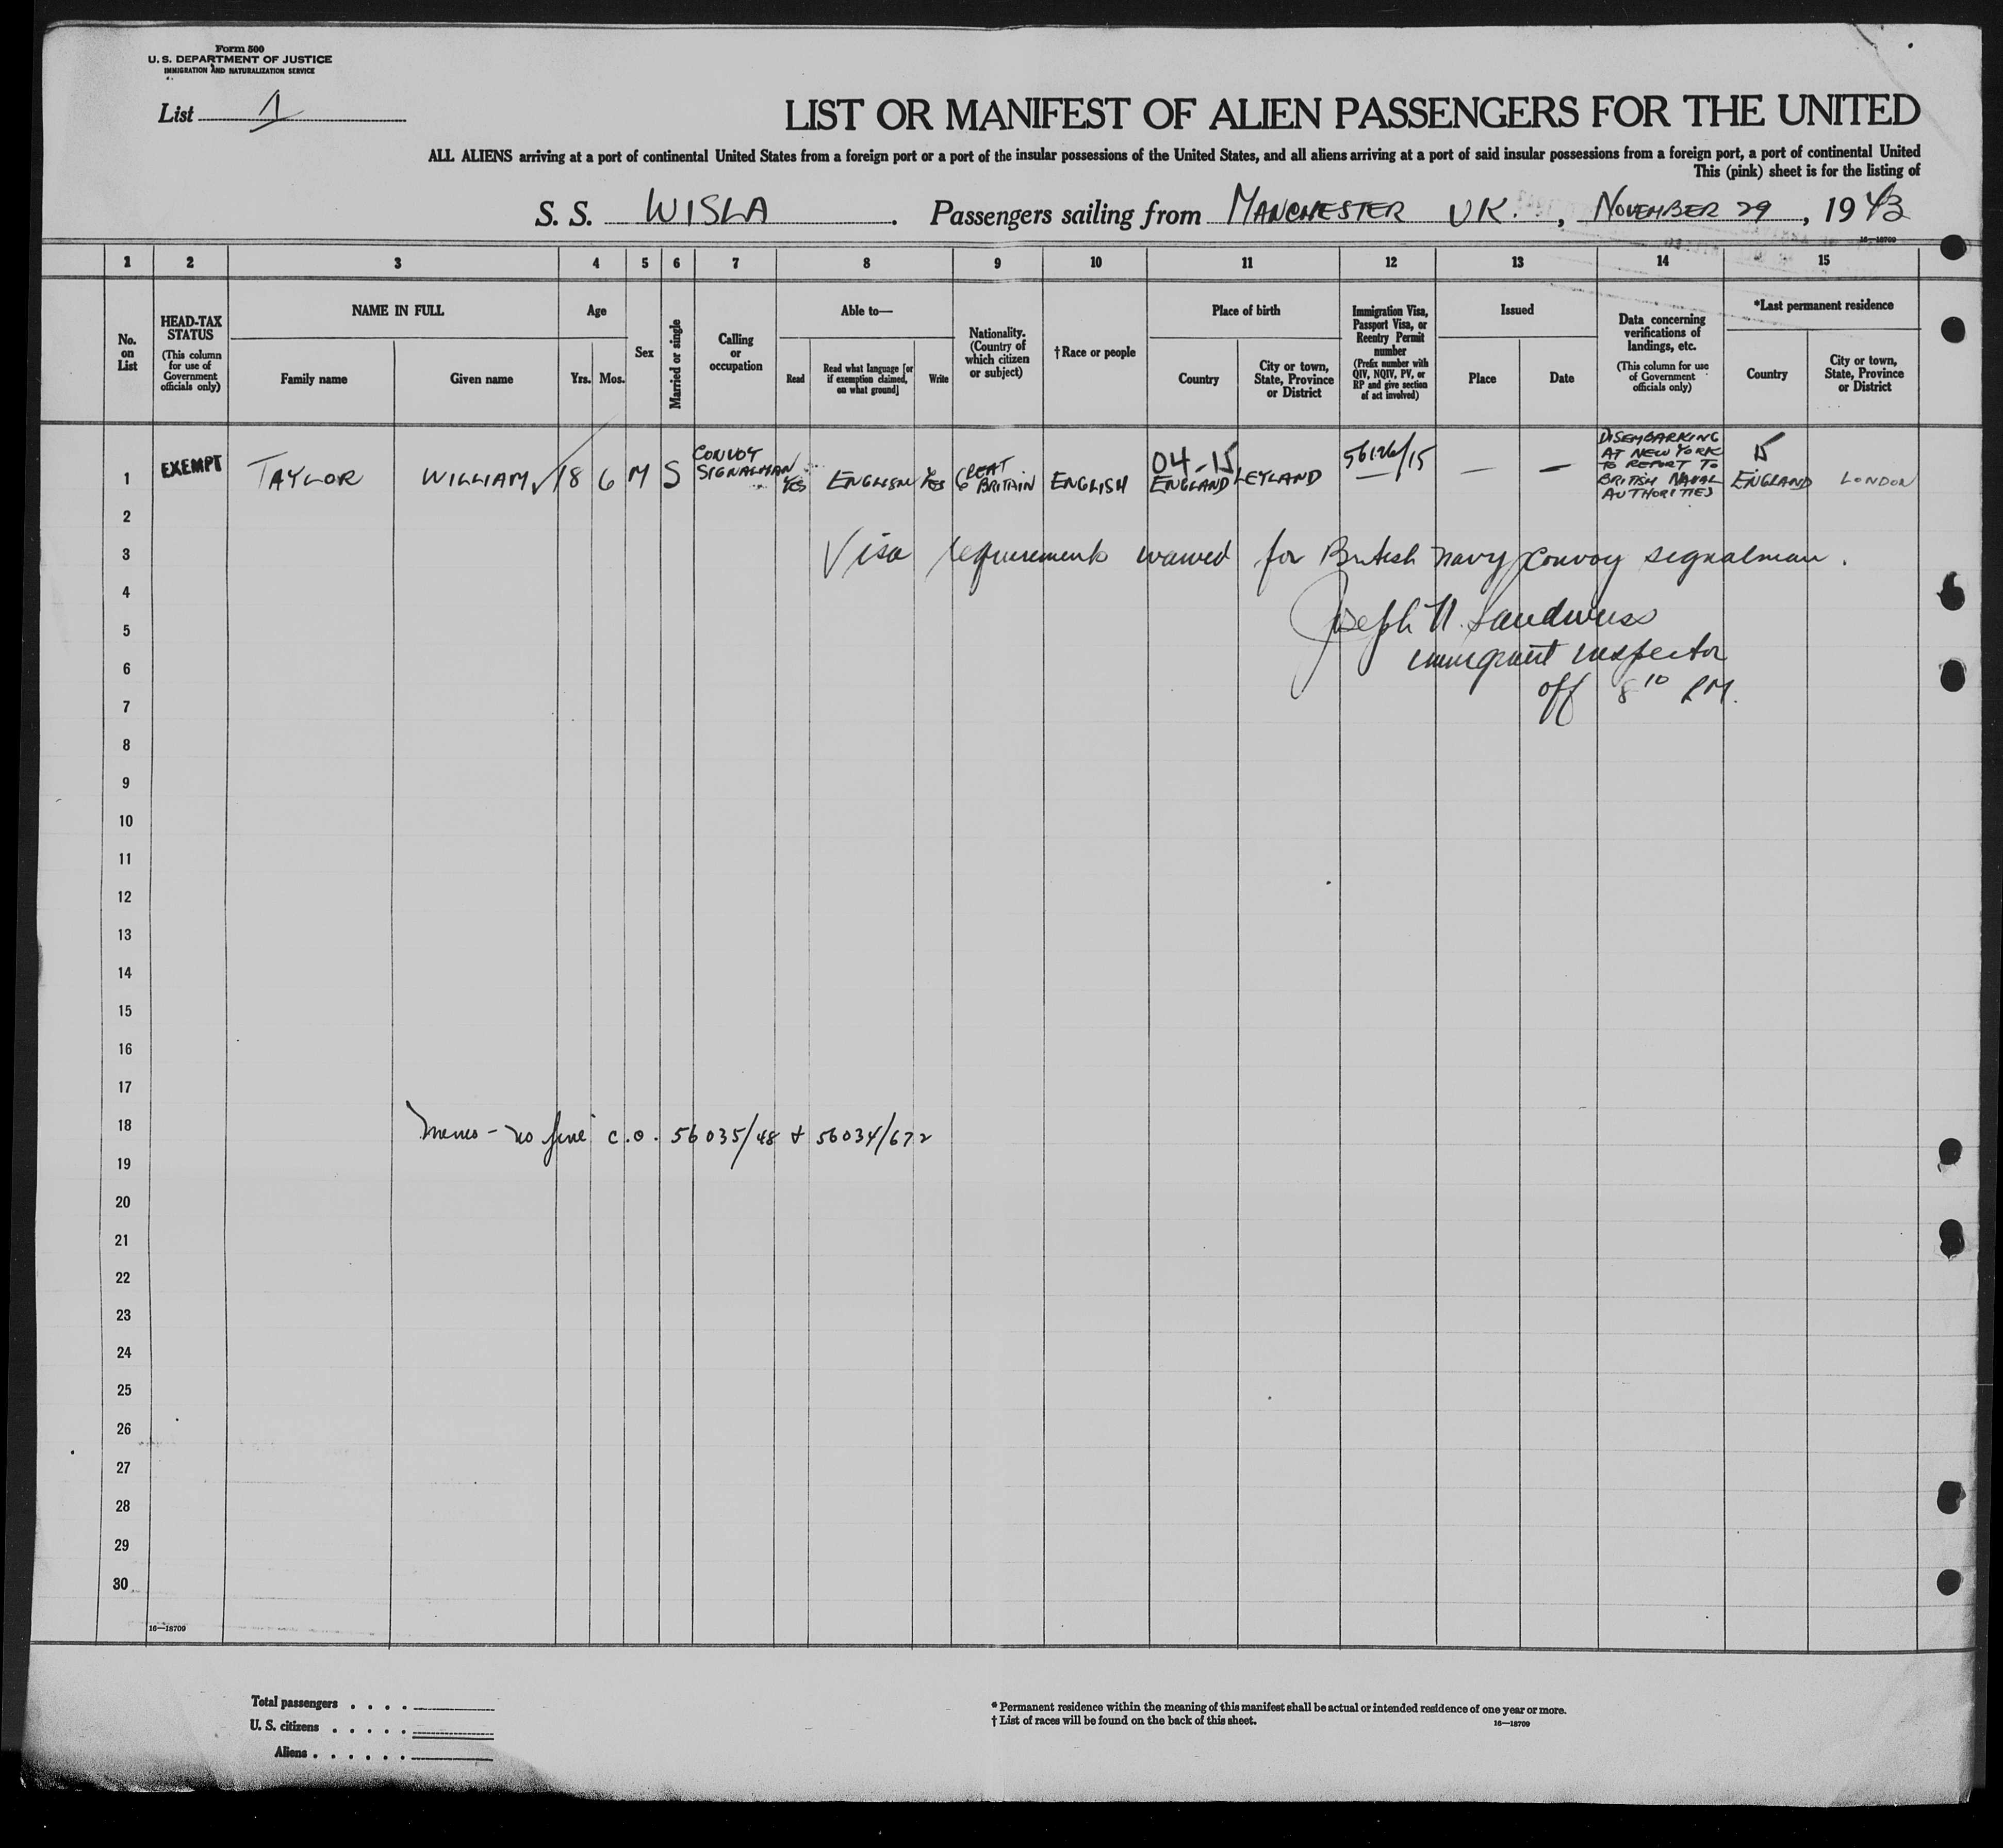 Form 500
U. S. DEPARTMENT OF JUSTICE
IMMIGRATION AND NATURALIZATION SERVICE
List 1
LIST OR MANIFEST OF ALIEN PASSENGERS FOR THE UNITED
ALL ALIENS arriving at a port of continental United States from a foreign port or a port of the insular possessions of the United States, and all aliens arriving at a port of said insular possessions from a foreign port, a port of continental United
This (pink) sheet is for the listing of
S. S. WISLA. Passengers sailing from MANCHESTER UK., NOVEMBER 29, 1943
16—18709
1 2 3 4 5 6 7 8 9 10 11 12 13 14 15
No. on List
HEAD-TAX STATUS
(This column for use of Government officials only)
NAME IN FULL
Family name
Given name
Age
Yrs. Mos.
Sex
Married or single
Calling or occupation
Able to—
Read
Read what language [or if exemption claimed, on what ground]
Write
Nationality. (Country of which citizen or subject)
†Race or people
Place of birth
Country
City or town, State, Province or District
Immigration Visa, Passport Visa, or Reentry Permit number
(Prefix number with QIV, NQIV, PV, or RP and give section of act involved)
Issued
Place
Date
Data concerning verifications of landings, etc.
(This column for use of Government officials only)
*Last permanent residence
Country
City or town, State, Province or District
1 EXEMPT TAYLOR WILLIAM 18 6 M S CONVOY SIGNALMAN YES ENGLISH YES GREAT BRITAIN ENGLISH 04-15 ENGLAND LEYLAND 56126/15 — — DISEMBARKING AT NEW YORK TO REPORT TO BRITISH NAVAL AUTHORITIES 15 ENGLAND LONDON
2
3 Visa requirements waived for British Navy Convoy signalman.
4
5 Joseph N.
6 immigrant inspector
7 off 8 10 PM.
8
9
10
11
12
13
14
15
16
17
18 Memo - no fine c.o. 56035/48 + 56034/672
19
20
21
22
23
24
25
26
27
28
29
30
16—18709
Total passengers . . . .
U. S. citizens . . . . .
Aliens . . . . . .
* Permanent residence within the meaning of this manifest shall be actual or intended residence of one year or more.
† List of races will be found on the back of this sheet.
16—18709